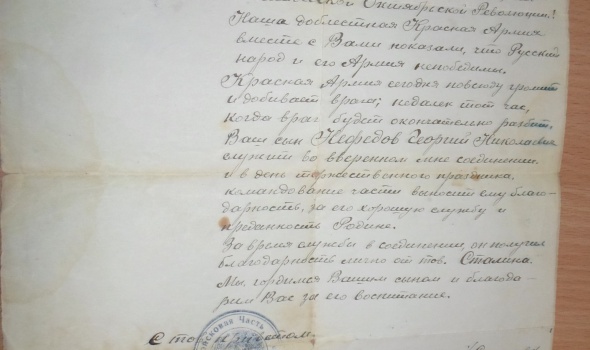 Октябрьской Революции!
Наша доблестная Красная Армия
вместе с Вами показали, что Русский
народ и его Армия непобедимы.
Красная Армия сегодня повсюду громит
и добивает врага; недалек тот час,
когда враг будет окончательно разбит.
Ваш сын Нефедов Георгий Николаевич
служит во вверенном мне соединении
и в день торжественного праздника,
командование части выносит ему благо-
дарность, за его хорошую службу и
преданность Родине.
За время службы в соединении, он получил
благодарность лично от тов. Сталина.
Мы гордимся Вашим сыном и благода-
рим Вас за его воспитание.
Войсковая Часть